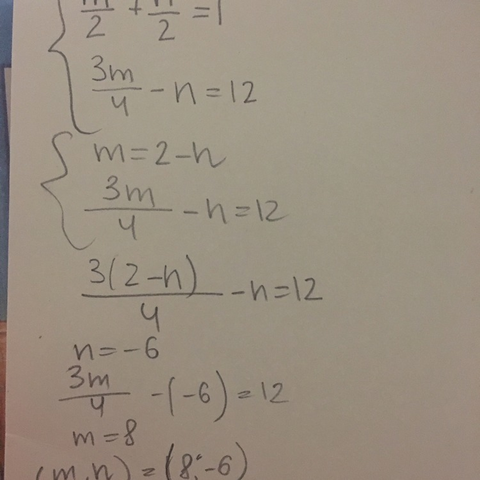 m/2 + n/2 = 1
3m/4 - n = 12
m = 2 - n
3m/4 - n = 12
3(2-n)/4 - n = 12
n = -6
3m/4 - (-6) = 12
m = 8
(m, n) = (8; -6)